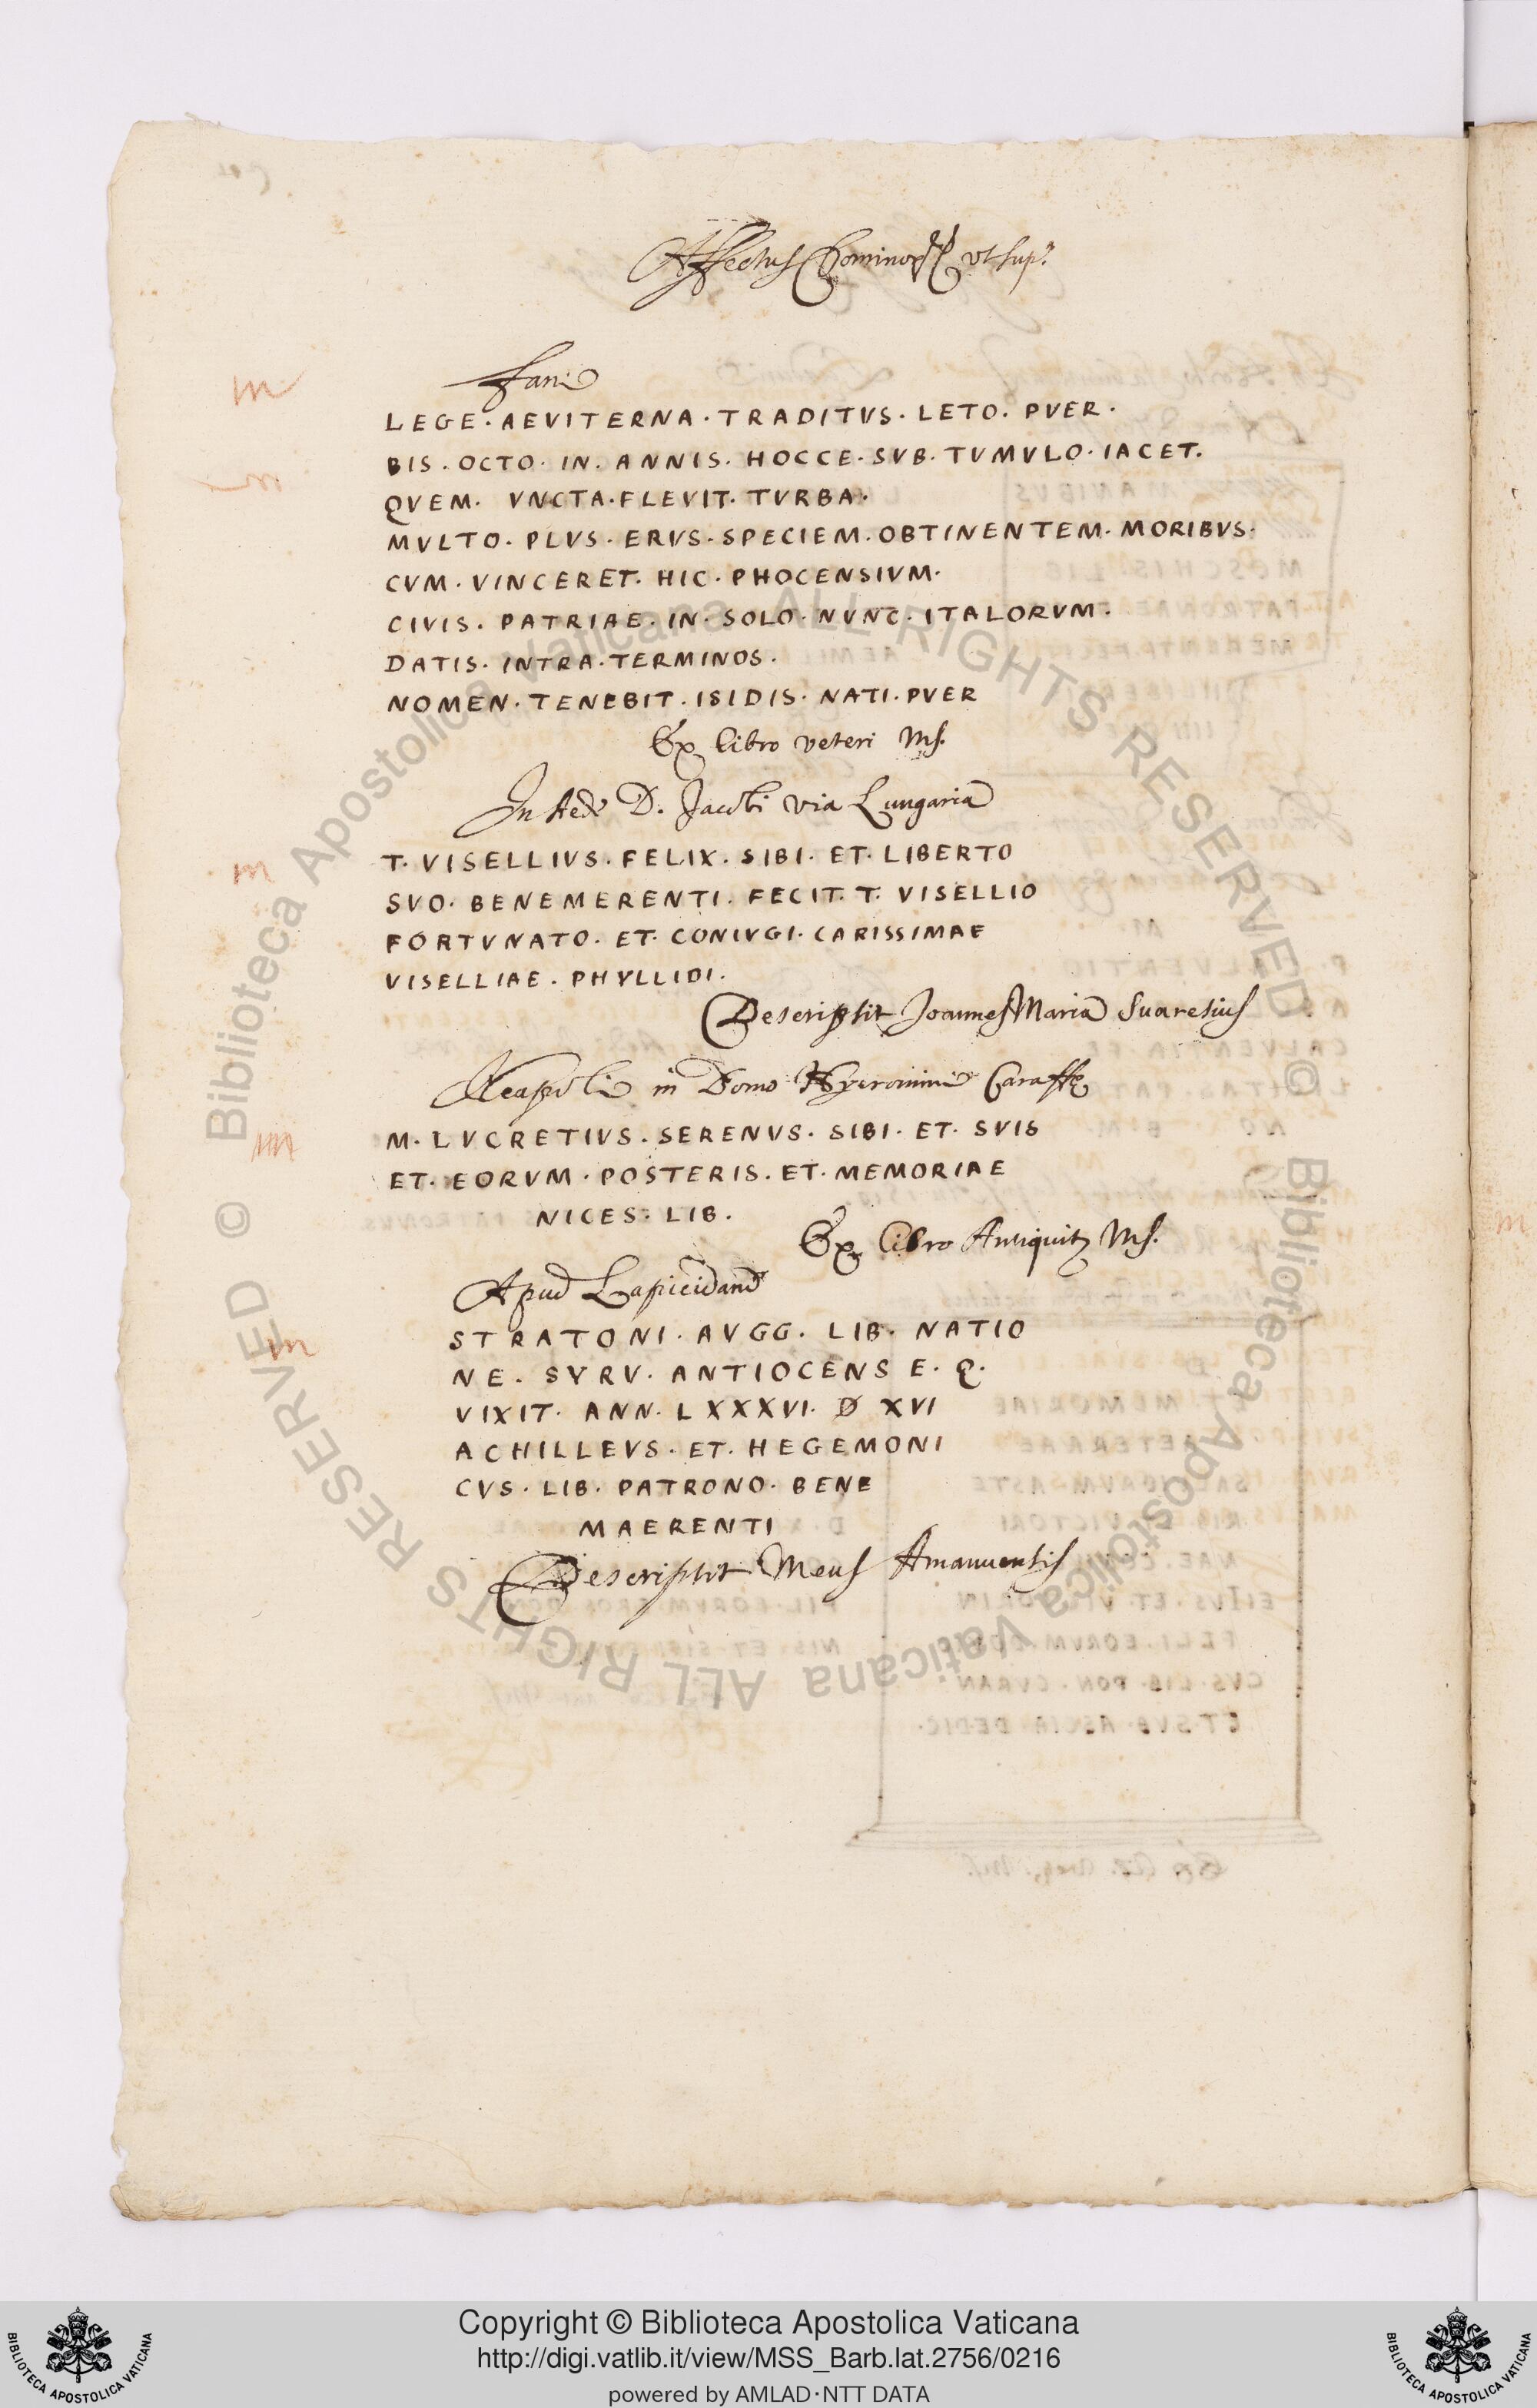 Affectus Dominorum ut sup.
Fani
LEGE · AEVITERNA · TRADITVS · LETO · PVER ·
BIS · OCTO · IN · ANNIS · HOCCE · SVB · TVMVLO · IACET ·
QVEM · VNCTA · FLEVIT · TVRBA ·
MVLTO · PLVS · ERVS · SPECIEM · OBTINENTEM · MORIBVS ·
CVM · VINCERET · HIC · PHOCENSIVM ·
CIVIS · PATRIAE · IN · SOLO · NVNC · ITALORVM ·
DATIS · INTRA · TERMINOS ·
NOMEN · TENEBIT · ISIDIS · NATI · PVER
Ex libro veteri Ms.
In Aede D. Jacobi via Lungaria
T · VISELLIVS · FELIX · SIBI · ET · LIBERTO
SVO · BENEMERENTI · FECIT · T · VISELLIO
FORTVNATO · ET · CONIVGI · CARISSIMAE
VISELLIAE · PHYLLIDI ·
Descripsit Joannes Maria Suaresius
Neapoli in Domo Hyeronimi Caraffę
M · LVCRETIVS · SERENVS · SIBI · ET · SVIS
ET · EORVM · POSTERIS · ET · MEMORIAE
NICES · LIB ·
Ex libro Antiquit. Ms.
Apud Lapicidam
STRATONI · AVGG · LIB · NATIO
NE · SYRV · ANTIOCENS E · Q ·
VIXIT · ANN · LXXXVI · D XVI
ACHILLEVS · ET · HEGEMONI
CVS · LIB · PATRONO · BENE
MAERENTI
Descripsit Meus Amanuensis
Copyright © Biblioteca Apostolica Vaticana
http://digi.vatlib.it/view/MSS_Barb.lat.2756/0216
powered by AMLAD·NTT DATA
BIBLIOTECA APOSTOLICA VATICANA
BIBLIOTECA APOSTOLICA VATICANA
© Biblioteca Apostolica Vaticana ALL RIGHTS RESERVED
© Biblioteca Apostolica Vaticana ALL RIGHTS RESERVED